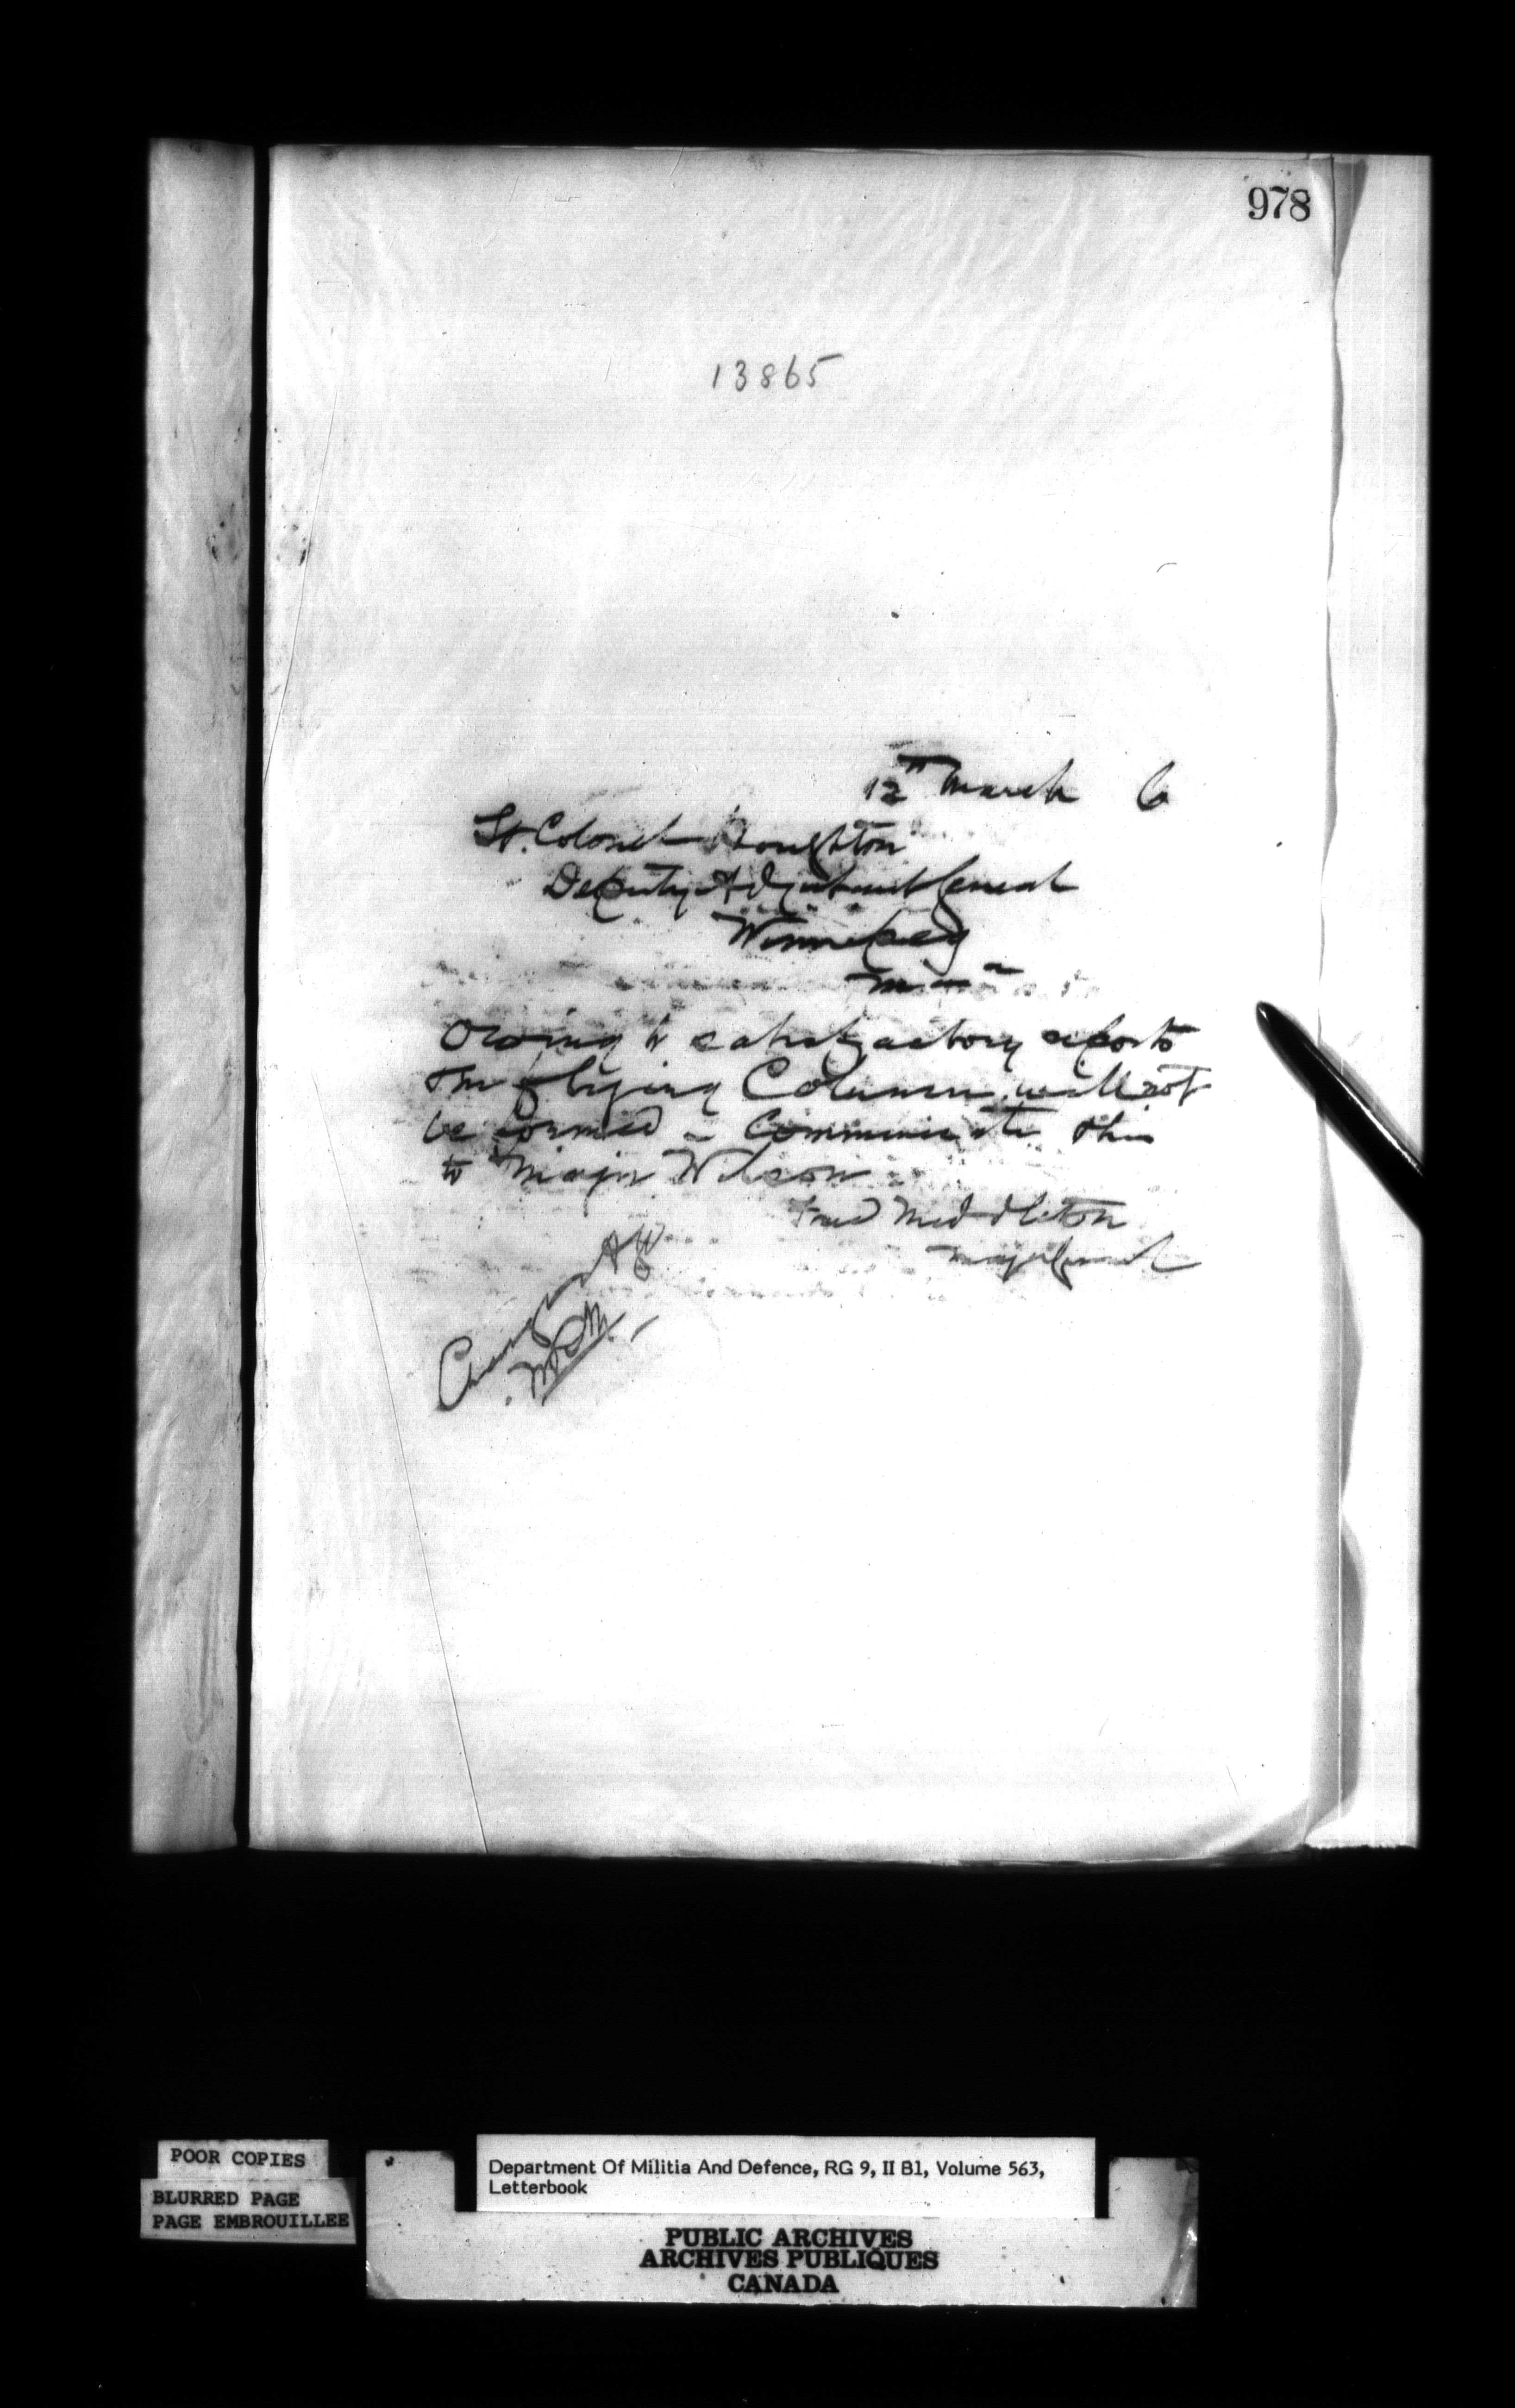 978
13865
12th March 6
Lt. Colonel Houghton
Deputy Adjutant General
Winnipeg
Man
Owing to satisfactory reports
the flying Column will not
be formed – Communicate this
to Major Wilson
Fred Middleton
Maj General
Charge
POOR COPIES
BLURRED PAGE
PAGE EMBROUILLEE
Department Of Militia And Defence, RG 9, II B1, Volume 563,
Letterbook
PUBLIC ARCHIVES
ARCHIVES PUBLIQUES
CANADA